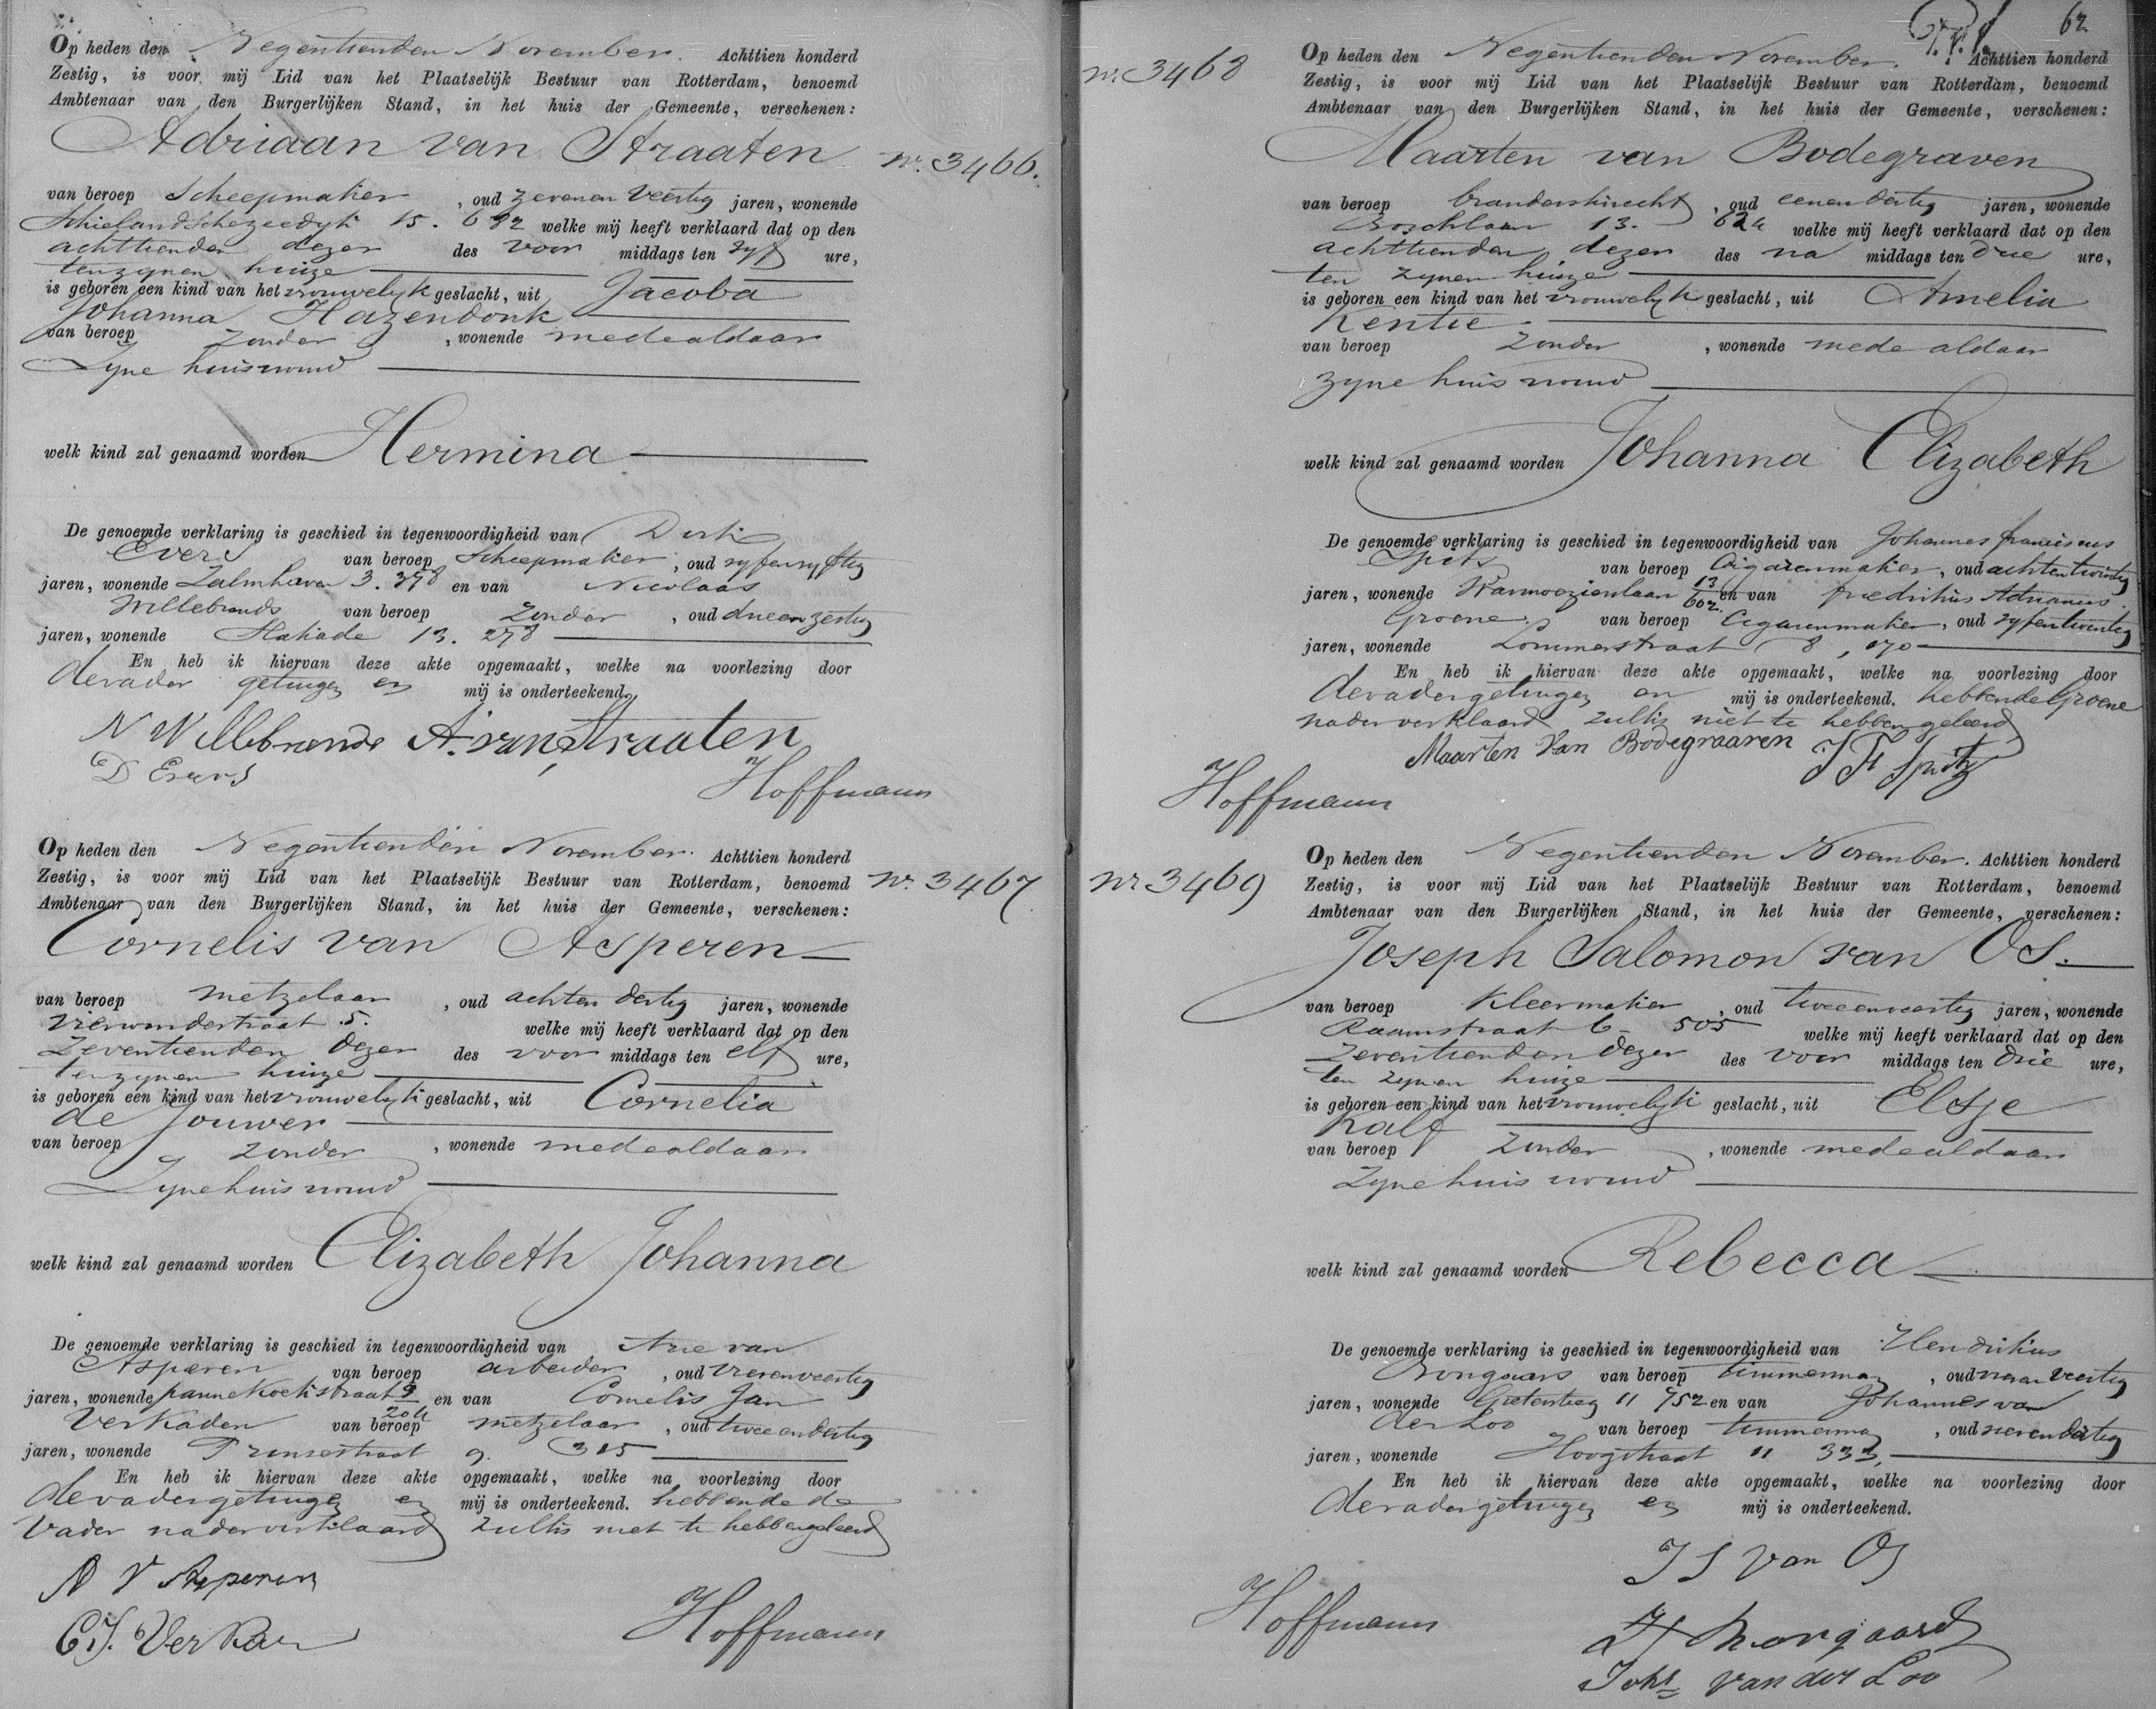 Op heden den Negentienden November. Achttien honderd
Zestig, is voor mij Lid van het Plaatselijk Bestuur van Rotterdam, benoemd
Ambtenaar van den Burgerlijken Stand, in het huis der Gemeente, verschenen:
Adriaan van Straaten
nr. 3466.
van beroep Scheepmaker, oud zevenenveertig jaren, wonende
Schielandschezeedyk 15. 692 welke mij heeft verklaard dat op den
achttienden dezer des voor middags ten vyf ure,
tenzynen huize
is geboren een kind van het vrouwelyk geslacht, uit Jacoba
Johanna Hazendonk
van beroep zonder, wonende medealdaar
Zyne huisvrouw
welk kind zal genaamd worden Hermina
De genoemde verklaring is geschied in tegenwoordigheid van Dirk
Evers van beroep Scheepmaker, oud vyfenvyftig
jaren, wonende Zalmhaven 3. 398 en van Nicolaas
Willebrands van beroep zonder, oud drieenzestig
jaren, wonende 13. 278
En heb ik hiervan deze akte opgemaakt, welke na voorlezing door
devader getuigen en mij is onderteekend.
N Willebrands A. van Straaten
D Evers
Hoffmann
Op heden den Negentienden November. Achttien honderd
Zestig, is voor mij Lid van het Plaatselijk Bestuur van Rotterdam, benoemd
nr. 3467
Ambtenaar van den Burgerlijken Stand, in het huis der Gemeente, verschenen:
Cornelis van Asperen
van beroep metzelaar, oud achtendertig jaren, wonende
Vierwindestraat 5. welke mij heeft verklaard dat op den
Zeventienden dezer des voor middags ten elf ure,
tenzynen huize
is geboren een kind van het vrouwelyk geslacht, uit Cornelia
de Jouwer
van beroep zonder, wonende medealdaar
Zynehuisvrouw
welk kind zal genaamd worden Elizabeth Johanna
De genoemde verklaring is geschied in tegenwoordigheid van Arie van
Asperen van beroep arbeider, oud vierenveertig
jaren, wonende pannekoekstraat 9 en van Cornelis Jan
Verkaden van beroep metzelaar, oud tweeendertig
jaren, wonende Prinsestraat 9. 315
En heb ik hiervan deze akte opgemaakt, welke na voorlezing door
devadergetuigen en mij is onderteekend. hebbende de
Vader naderverklaard zulks niet te hebbengeleerd
A V Asperen
C.J. Verkaden
Hoffmann
62
nr. 3468
Op heden den Negentienden November. Achttien honderd
Zestig, is voor mij Lid van het Plaatselijk Bestuur van Rotterdam, benoemd
Ambtenaar van den Burgerlijken Stand, in het huis der Gemeente, verschenen:
Maarten van Bodegraven
van beroep brandersknecht, oud eenendertig jaren, wonende
Boschlaan 13. 624 welke mij heeft verklaard dat op den
achttienden dezer des na middags ten drie ure,
ten zynen huize
is geboren een kind van het vrouwelyk geslacht, uit Amelia
Kentie
van beroep zonder, wonende mede aldaar
zyne huisvrouw
welk kind zal genaamd worden Johanna Elizabeth
De genoemde verklaring is geschied in tegenwoordigheid van Johannes franciscus
Spits van beroep Cigarenmaker, oud achtentwintig
jaren, wonende Warmoezierslaan 13 602 en van fredrikus Adrianus
Groene van beroep Cigarenmaker, oud vyfentwintig
jaren, wonende Lommerstraat 8, 170
En heb ik hiervan deze akte opgemaakt, welke na voorlezing door
devadergetuigen en mij is onderteekend. hebbendeGroene
nader verklaard zulks niet te hebben geleerd
Maarten Van Bodegraaven J F Spitz
Hoffmann
Op heden den Negentienden November. Achttien honderd
nr 3469
Zestig, is voor mij Lid van het Plaatselijk Bestuur van Rotterdam, benoemd
Ambtenaar van den Burgerlijken Stand, in het huis der Gemeente, verschenen:
Joseph Salomon van Os.
van beroep Kleermaker, oud tweeenveertig jaren, wonende
Raamstraat 6 - 505 welke mij heeft verklaard dat op den
Zeventienden dezer des voor middags ten drie ure,
ten zynen huize
is geboren een kind van het vrouwelyk geslacht, uit Elsje
Kalf
van beroep zonder, wonende medealdaar
Zyne huisvrouw
welk kind zal genaamd worden Rebecca
De genoemde verklaring is geschied in tegenwoordigheid van Hendrikus
van beroep timmerman, oud veertig
jaren, wonende 11 752 en van Johannes van
der Loo van beroep timmerman, oud dertig
jaren, wonende Hoogstraat 11 333,
En heb ik hiervan deze akte opgemaakt, welke na voorlezing door
devadergetuigen en mij is onderteekend.
J S van Os
Hoffmann
Johs van der Loo